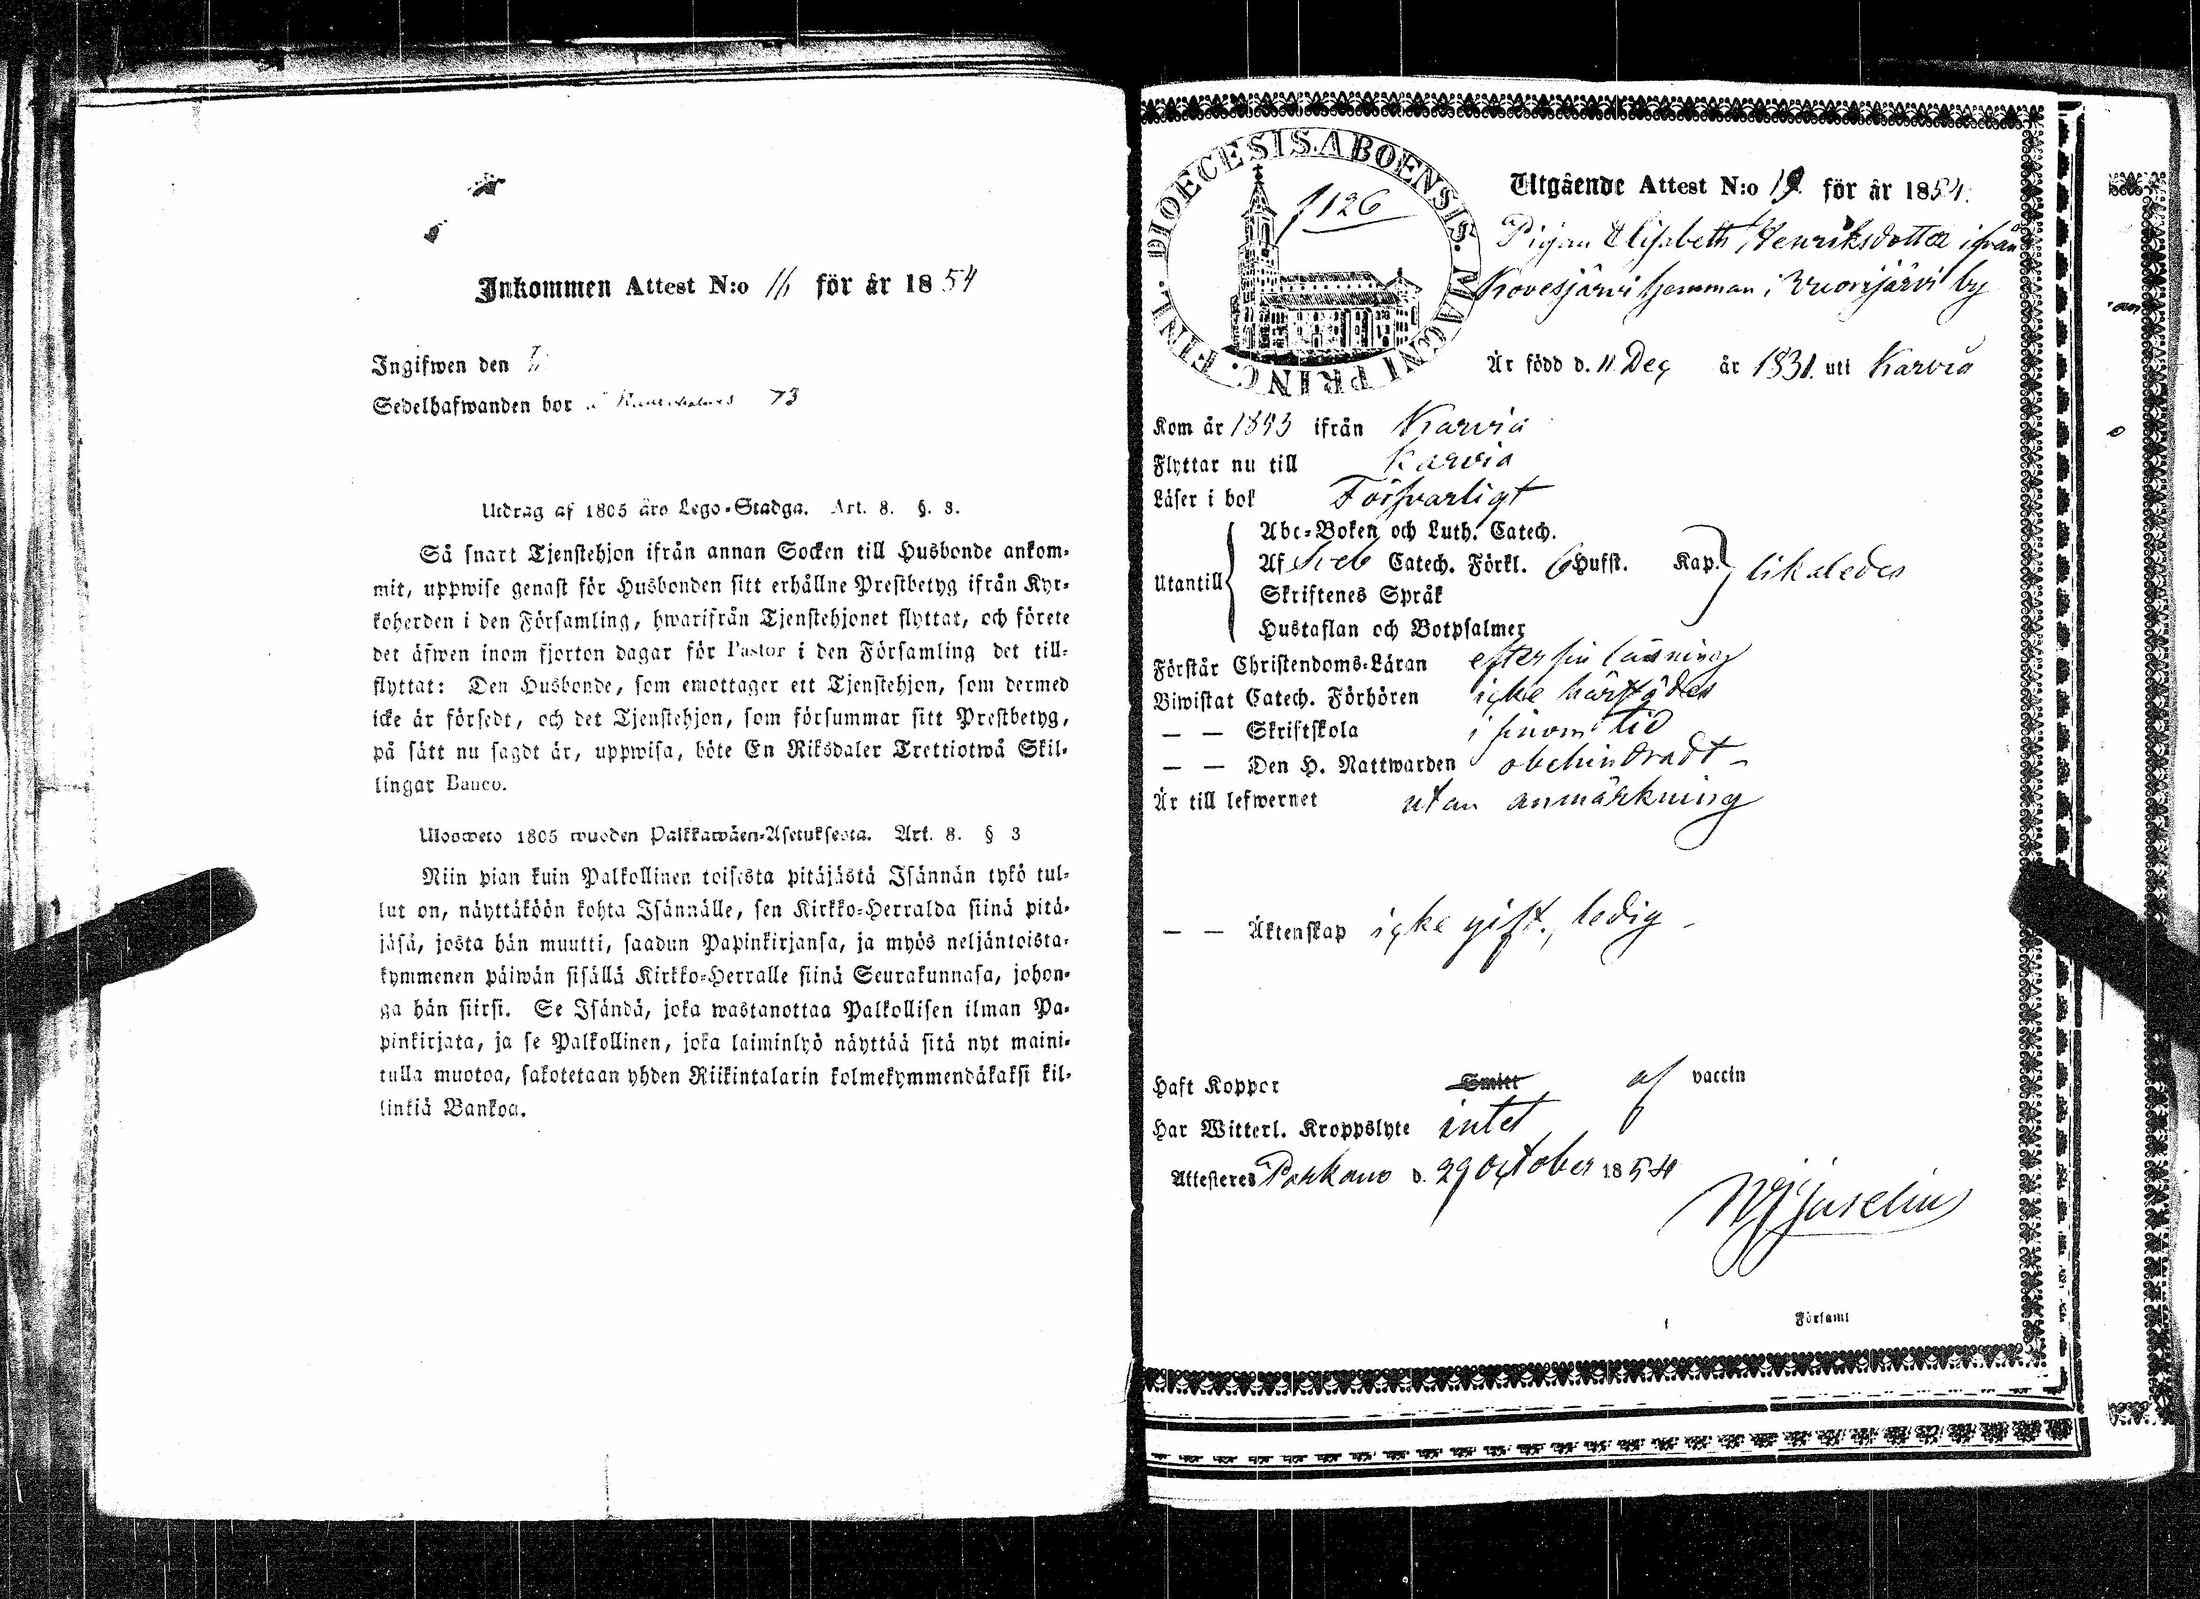 Inkommen Attest N:o 16 för år 1854
Ingifwen den
Sedelhafwanden bor 73
Utdrag af 1805 års Lego-Stadga. Art. 8. §. 3.
Så snart Tjenstehjon ifrån annan Socken till Husbonde ankom-
mit, uppwise genast för Husbonden sitt erhållne Prestbetyg ifrån Kyr-
koherden i den Församling, hwarifrån Tjenstehjonet flyttat, och förete
det äfwen inom fjorton dagar för Pastor i den Församling det till-
flyttat: Den Husbonde, som emottager ett Tjenstehjon, som dermed
icke är försedt, och det Tjenstehjon, som försummar sitt Prestbetyg,
på sätt nu sagdt är, uppwisa, böte En Riksdaler Trettiotwå Skil-
lingar Banco.
Ulosweto 1805 wuoden Palkkawäen-Asetuksesta. Art. 8. § 3
Niin pian kuin Palkollinen toisesta pitäjästä Isännän tykö tul-
lut on, näyttäköön kohta Isännälle, sen Kirkko-Herralda siinä pitä-
jäsä, josta hän muutti, saadun Papinkirjansa, ja myös neljäntoista-
kymmenen päiwän sisällä Kirkko-Herralle siinä Seurakunnasa, johon-
ga hän siirsi. Se Isändä, joka wastanottaa Palkollisen ilman Pa-
pinkirjata, ja se Palkollinen, joka laiminlyö näyttää sitä nyt maini-
tulla muotoa, sakotetaan yhden Riikintalarin kolmekymmendäkaksi kil-
linkiä Bankoa.
DIOECESIS. ABOENSIS. MAGNI PRINC. FINL.
f 126
Utgående Attest N:o 19 för år 1854.
Pigan Elisabeth Henriksdotter ifrån
Kovesjärvi hemman i Vuorijärvi by
Är född d. 11 Dec år 1831. uti Karvia
Kom år 1853 ifrån Karvia
Flyttar nu till Karvia
Läser i bok Försvarligt
Utantill
Abc-Boken och Luth. Catech.
Af Sveb Catech. Förkl. 6 Hufst. Kap. likaledes
Skriftenes Språk
Hustaflan och Botpsalmer
Förstår Christendoms-Läran efter sin läsning
Biwistat Catech. Förhören icke härstädes
— — Skriftskola i sinom tid
— — Den H. Nattwarden obehindradt –
Är till lefwernet utan anmärkning
— — Äktenskap icke gift, ledig –
Haft Koppor Smitt af vaccin
Har Witterl. Kroppslyte intet
Attesteres Parkano d. 29 October 1854
Församl